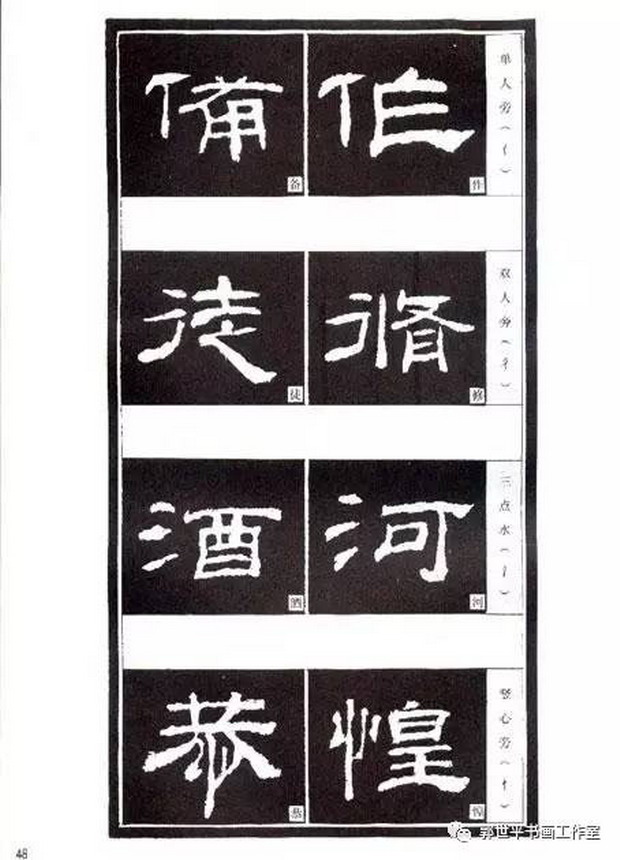 单人旁（亻）
作
作
備
备
双人旁（彳）
修
修
徒
徒
三点水（氵）
河
河
酒
酒
竖心旁（忄）
惶
惶
恭
恭
48
郭世平书画工作室